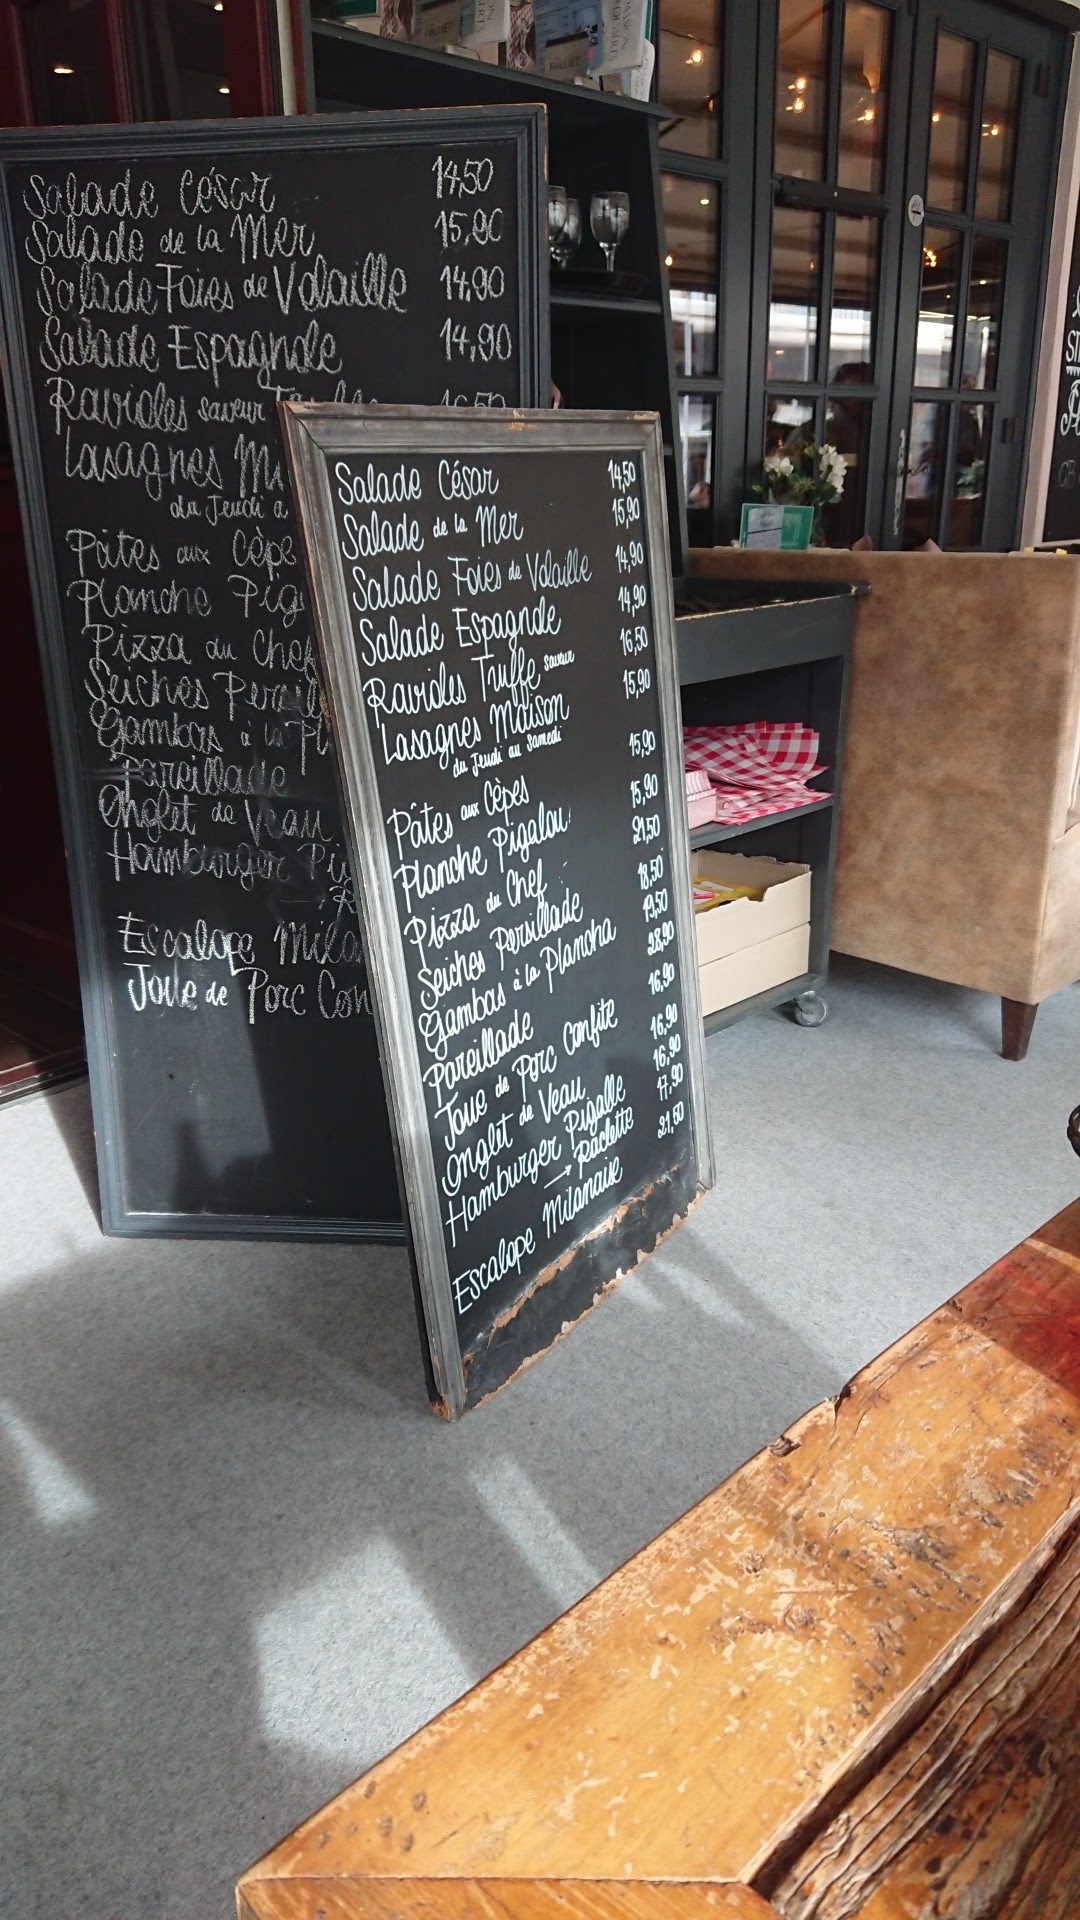 FOLLIET
PASSION
FOLLIET
Salade César 14,50
Salade de la Mer 15,90
Salade Foies de Volaille 14,90
Salade Espagnole 14,90
Ravioles saveur
Lasagnes
du Jeudi a
Pâtes aux Cèpe
Planche Pig
Pizza du Chef
Seiches Persill
Gambas à la Pl
Pareillade
Onglet de Veau
Hamburger Pi
Escalope Mila
Joue de Porc Con
Salade César 14,50
Salade de la Mer 15,90
Salade Foies de Volaille 14,90
Salade Espagnole 14,90
Ravioles Truffe saveur 16,50
Lasagnes Maison 15,90
du Jeudi au Samedi
Pâtes aux Cèpes 15,90
Planche Pigalou 15,90
Pizza du Chef 21,50
Seiches Persillade 18,50
Gambas à la Plancha 19,50
Pareillade 28,90
Joue de Porc Confite 16,90
Onglet de Veau 16,90
Hamburger Pigalle 16,90
→ Raclette 17,90
Escalope Milanaise 21,50